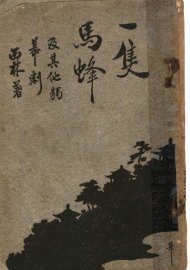 一隻
馬蜂
及其他獨
幕劇
西林著